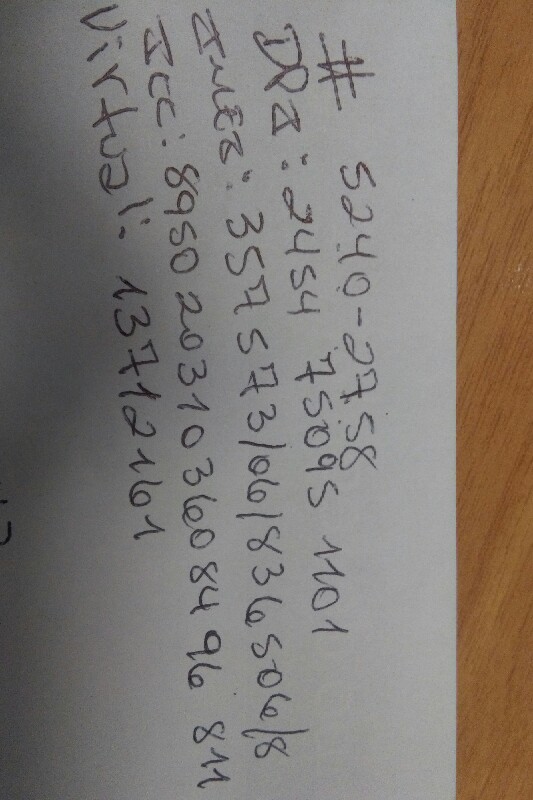 # 5240-2758
DPI: 2454 75095 1101
IMEI: 357573/06/836506/8
ICC: 8950203103608496 811
Virtual: 13712161